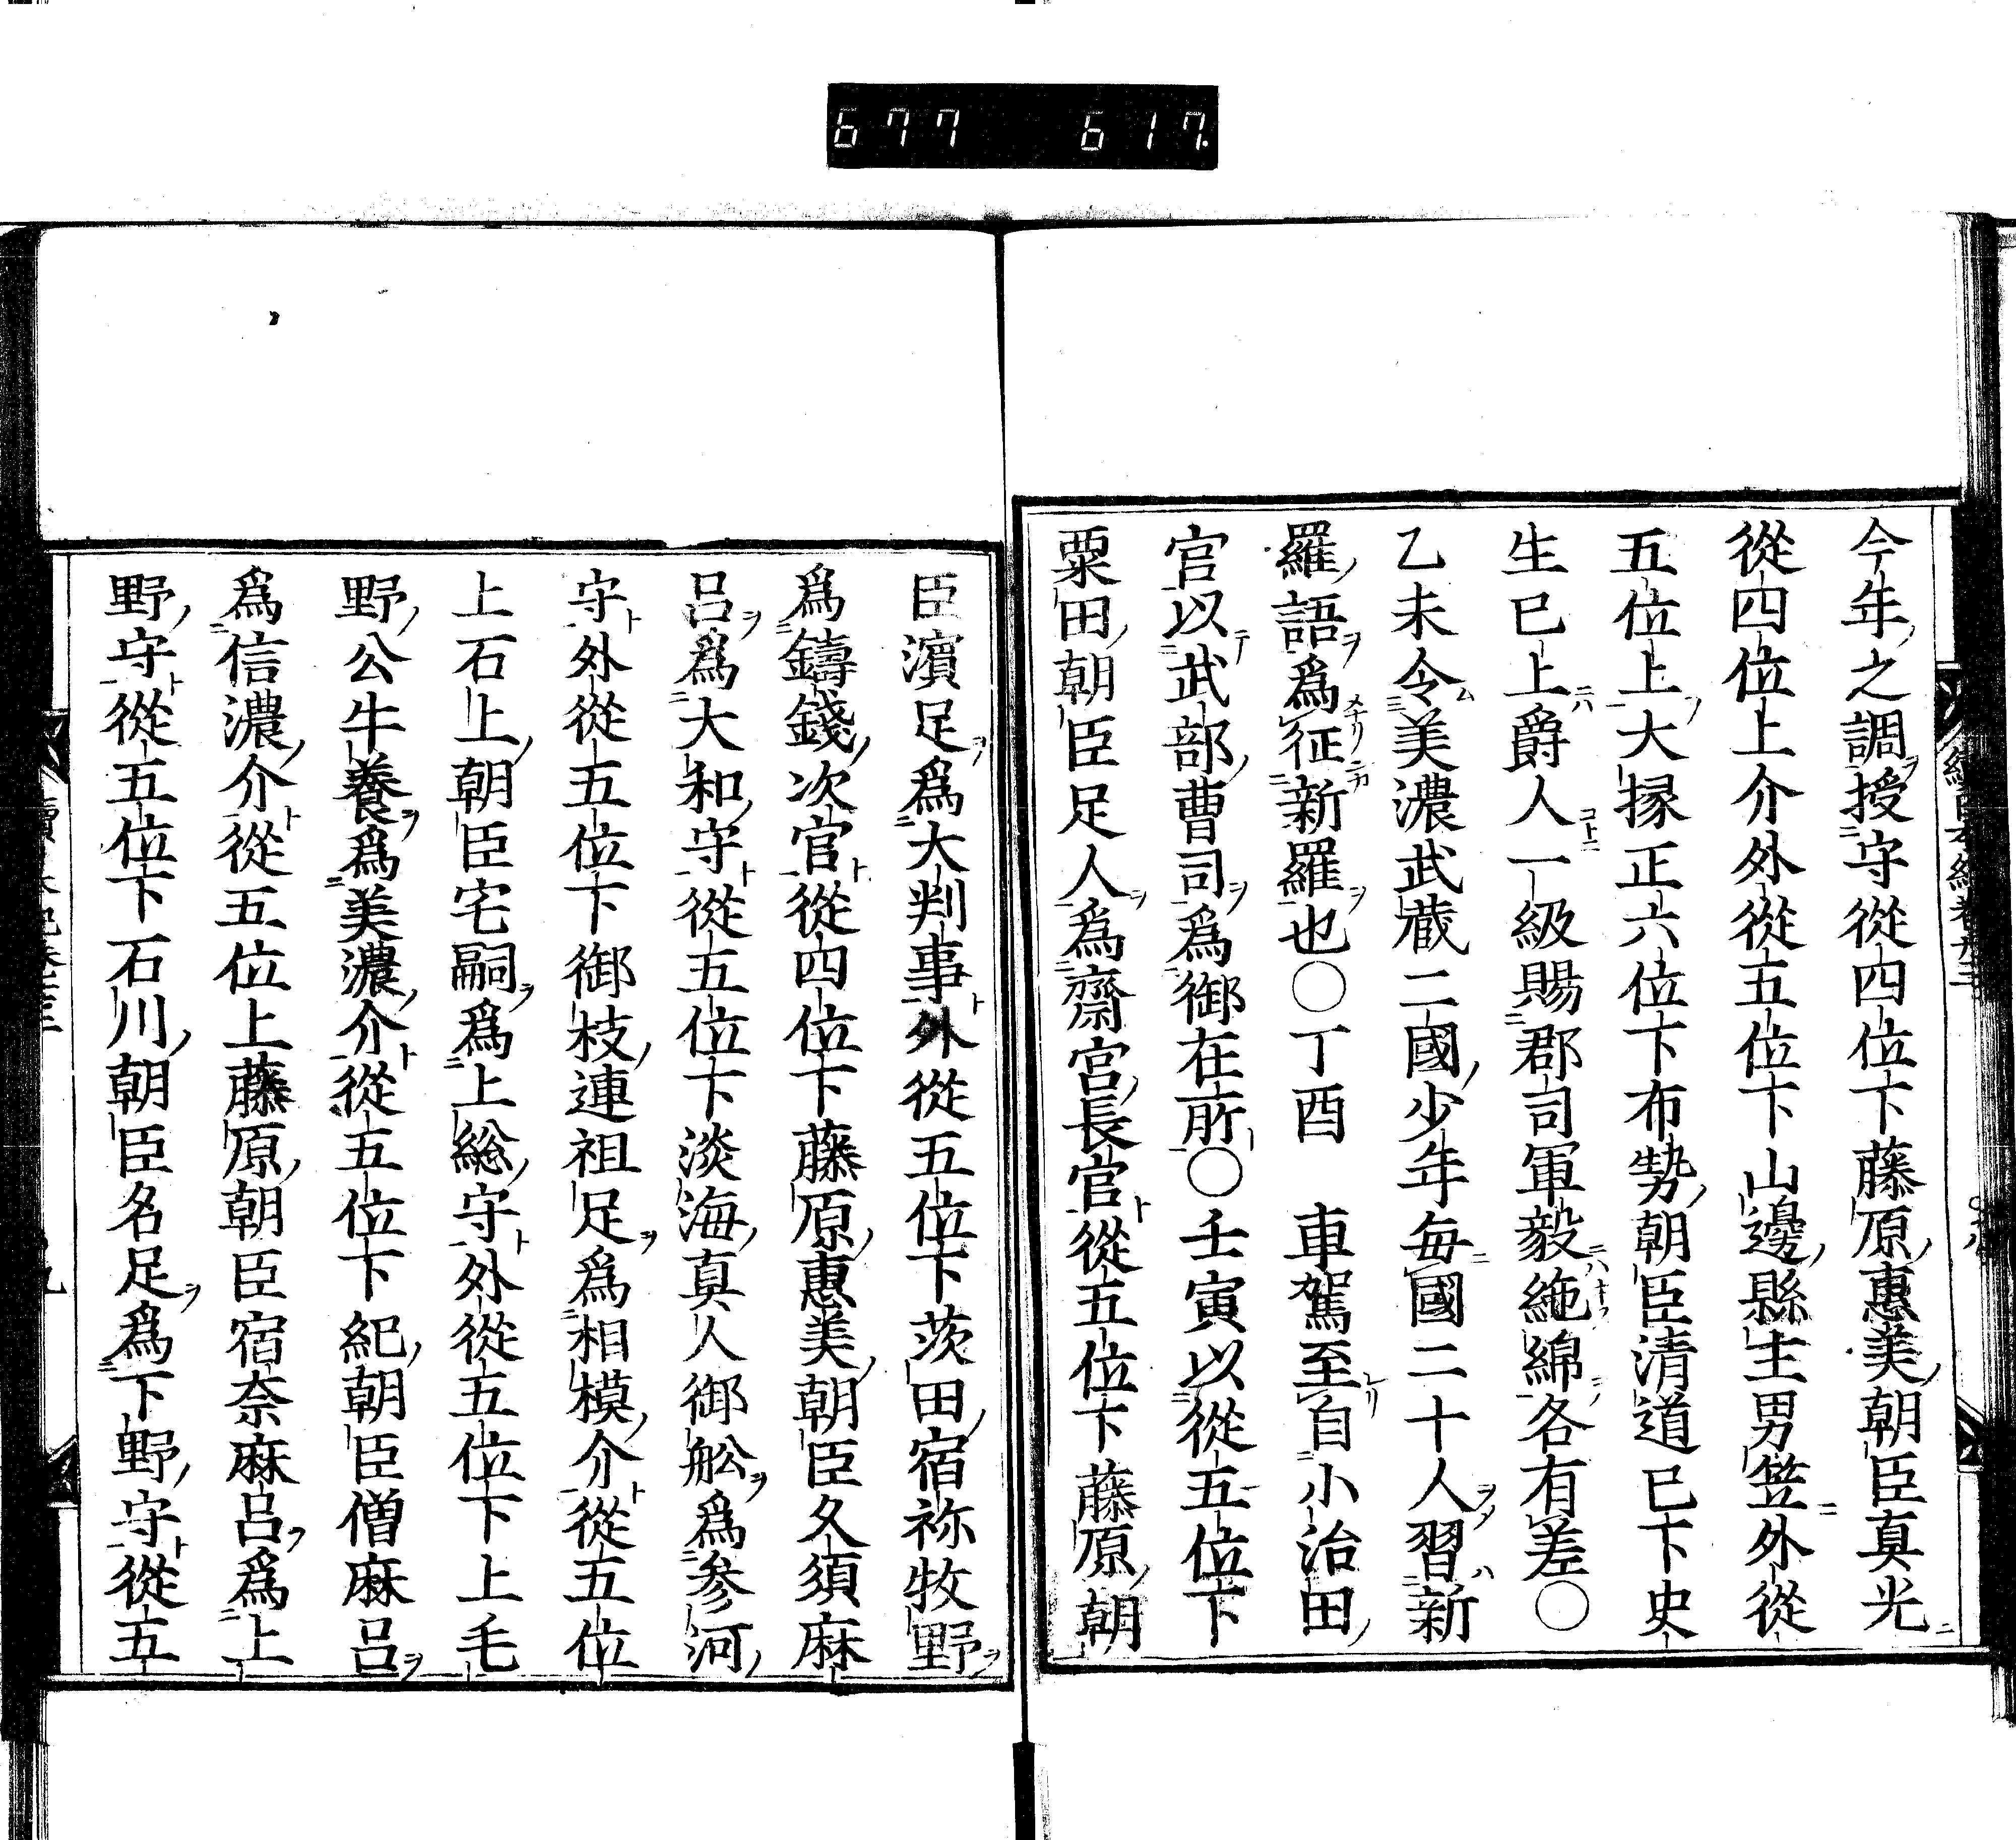 677 617.
今年之調授守從四位下藤原惠美朝臣真光
從四位上介外從五位下山邊縣主男笠外從
五位上大掾正六位下布勢朝臣清道已下史
生已上爵人一級賜郡司軍毅絁綿各有差○
乙未令美濃武藏二國少年每國二十人習新
羅語爲征新羅也○丁酉 車駕至自小治田
官以武部曹司爲御在所○壬寅以從五位下
粟田朝臣足人爲齋宮長官從五位下藤原朝
臣濵足爲大判事外從五位下茨田宿祢牧野
爲鑄錢次官從四位下藤原惠美朝臣久須麻
呂爲大和守從五位下淡海真人御舩爲参河
守外從五位下御枝連祖足爲相模介從五位
上石上朝臣宅嗣爲上総守外從五位下上毛
野公牛養爲美濃介從五位下紀朝臣僧麻呂
爲信濃介從五位上藤原朝臣宿奈麻呂爲上
野守從五位下石川朝臣名足爲下野守從五